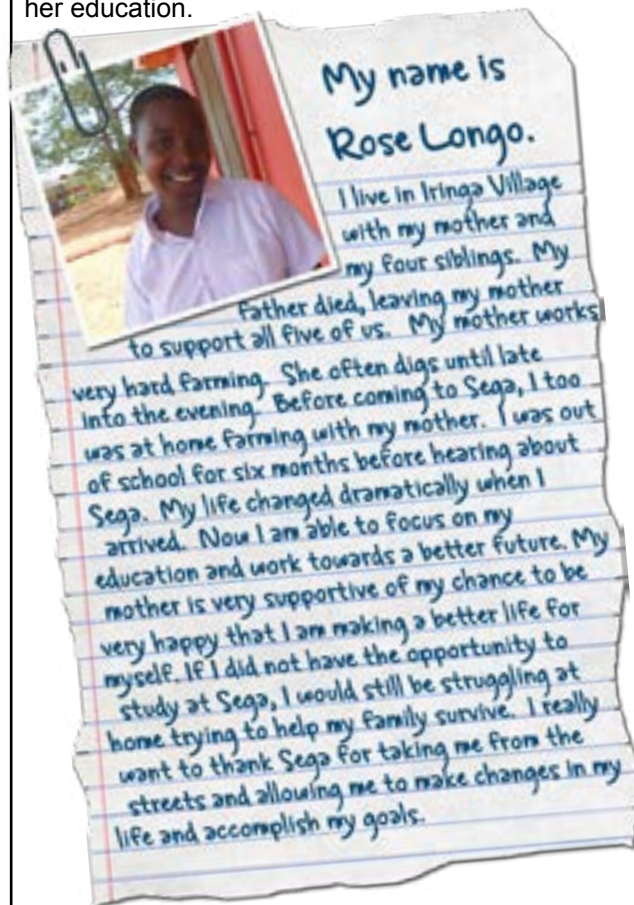 her education.
My name is
Rose Longo.
I live in Iringa Village
with my mother and
my four siblings. My
father died, leaving my mother
to support all five of us. My mother works
very hard farming. She often digs until late
into the evening. Before coming to Sega, I too
was at home farming with my mother. I was out
of school for six months before hearing about
Sega. My life changed dramatically when I
arrived. Now I am able to focus on my
education and work towards a better future. My
mother is very supportive of my chance to be
very happy that I am making a better life for
myself. If I did not have the opportunity to
study at Sega, I would still be struggling at
home trying to help my family survive. I really
want to thank Sega for taking me from the
streets and allowing me to make changes in my
life and accomplish my goals.